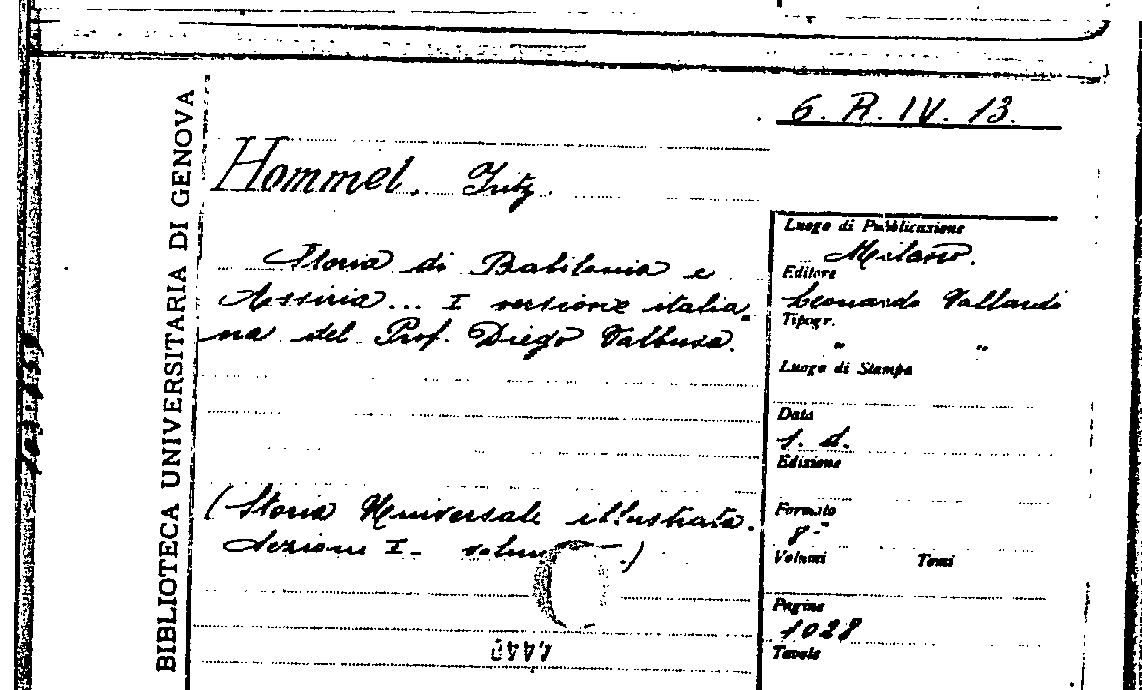 6. R. IV. 13.
BIBLIOTECA UNIVERSITARIA DI GENOVA
Hommel. Fritz.
Storia di Babilonia e
Assiria... I versione italia-
na del Prof. Diego Valbusa.
(Storia Universale illustrata.
Sezione I- volume .)
Luogo di Pubblicazione
Milano.
Editore
Leonardo Vallardi
Tipogr.
" "
Luogo di Stampa
Data
s. d.
Edizione
Formato
8-°
Volumi Tomi
Pagine
1028
Tavole